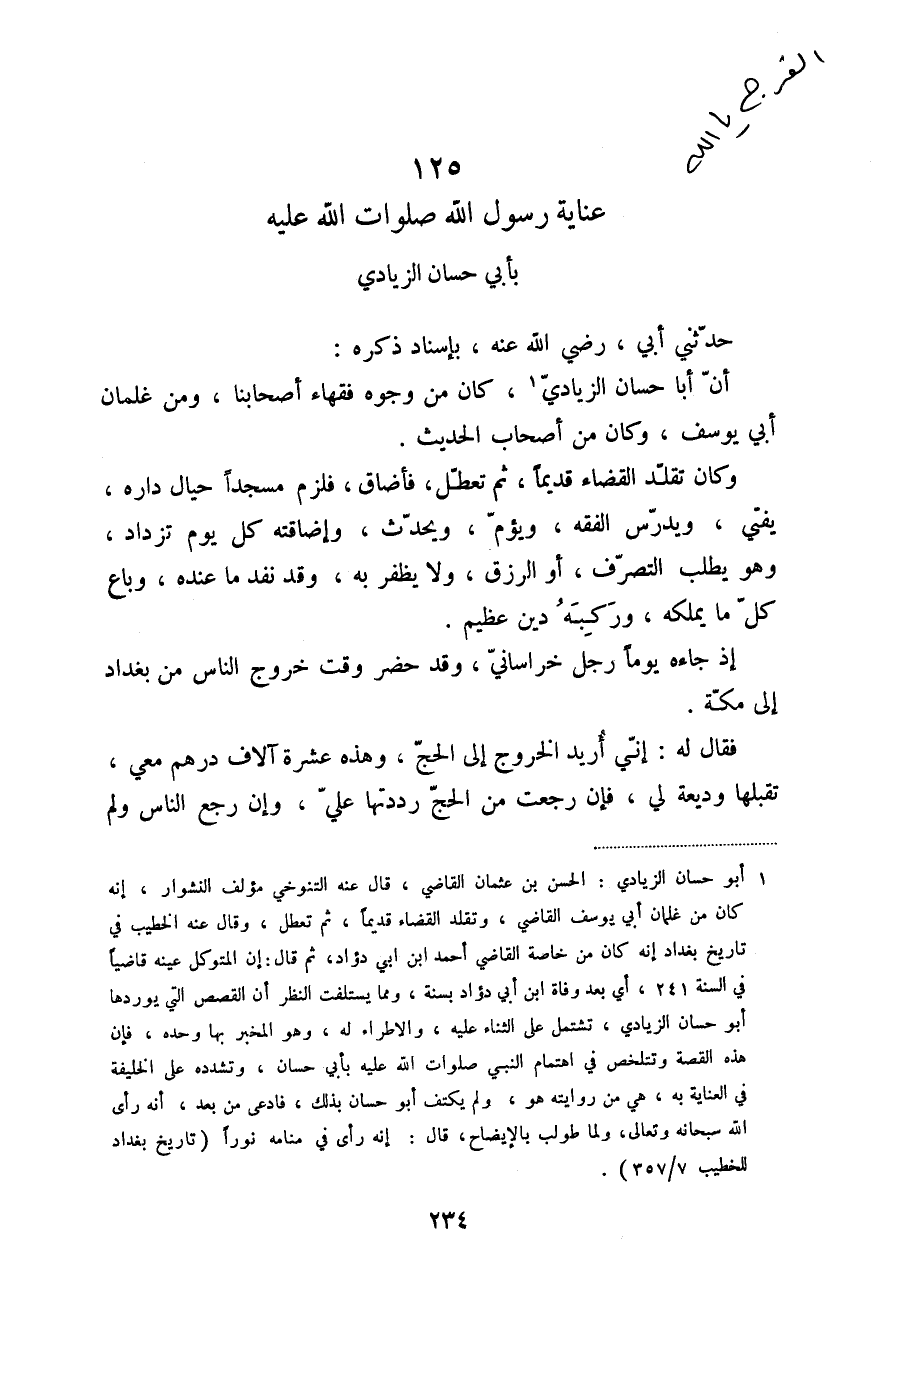 الفرج يا الله
١٢٥
عناية رسول الله صلوات الله عليه
بأبي حسان الزيادي
حدّثني أبي ، رضي الله عنه ، بإسناد ذكره :
أنّ أبا حسان الزياديّ١ ، كان من وجوه فقهاء أصحابنا ، ومن غلمان
أبي يوسف ، وكان من أصحاب الحديث .
وكان تقلّد القضاء قديماً ، ثم تعطّل ، فأضاق ، فلزم مسجداً حيال داره ،
يفتي ، ويدرّس الفقه ، ويؤمّ ، ويحدّث ، وإضاقته كل يوم تزداد ،
وهو يطلب التصرّف ، أو الرزق ، ولا يظفر به ، وقد نفد ما عنده ، وباع
كلّ ما يملكه ، ورَكِبَهُ دين عظيم .
إذ جاءه يوماً رجل خراسانيّ ، وقد حضر وقت خروج الناس من بغداد
إلى مكّة .
فقال له : إنّي أُريد الخروج إلى الحجّ ، وهذه عشرة آلاف درهم معي ،
تقبلها وديعة لي ، فإن رجعت من الحجّ رددتها عليّ ، وإن رجع الناس ولم
١ أبو حسان الزيادي : الحسن بن عثمان القاضي ، قال عنه التنوخي مؤلف النشوار ، إنه
كان من غلمان أبي يوسف القاضي ، وتقلد القضاء قديماً ، ثم تعطل ، وقال عنه الخطيب في
تاريخ بغداد إنه كان من خاصة القاضي أحمد ابن ابي دؤاد، ثم قال : إن المتوكل عينه قاضياً
في السنة ٢٤١ ، أي بعد وفاة ابن أبي دؤاد بسنة ، ومما يستلفت النظر أن القصص التي يوردها
أبو حسان الزيادي ، تشتمل على الثناء عليه ، والاطراء له ، وهو المخبر بها وحده ، فإن
هذه القصة وتتلخص في اهتمام النبي صلوات الله عليه بأبي حسان ، وتشدده على الخليفة
في العناية به ، هي من روايته هو ، ولم يكتف أبو حسان بذلك ، فادعى من بعد ، أنه رأى
الله سبحانه وتعالى، ولما طولب بالإيضاح، قال : إنه رأى في منامه نوراً ( تاريخ بغداد
للخطيب ٣٥٧/٧ ) .
٢٣٤